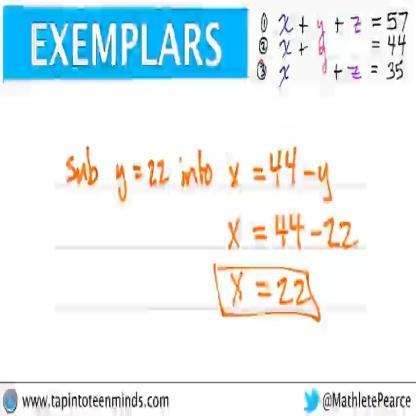 EXEMPLARS
① x + y + z = 57
② x + y = 44
③ x + z = 35
sub y = 22 into x = 44 - y
x = 44 - 22
x = 22
www.tapintoteenminds.com
@MathletePearce